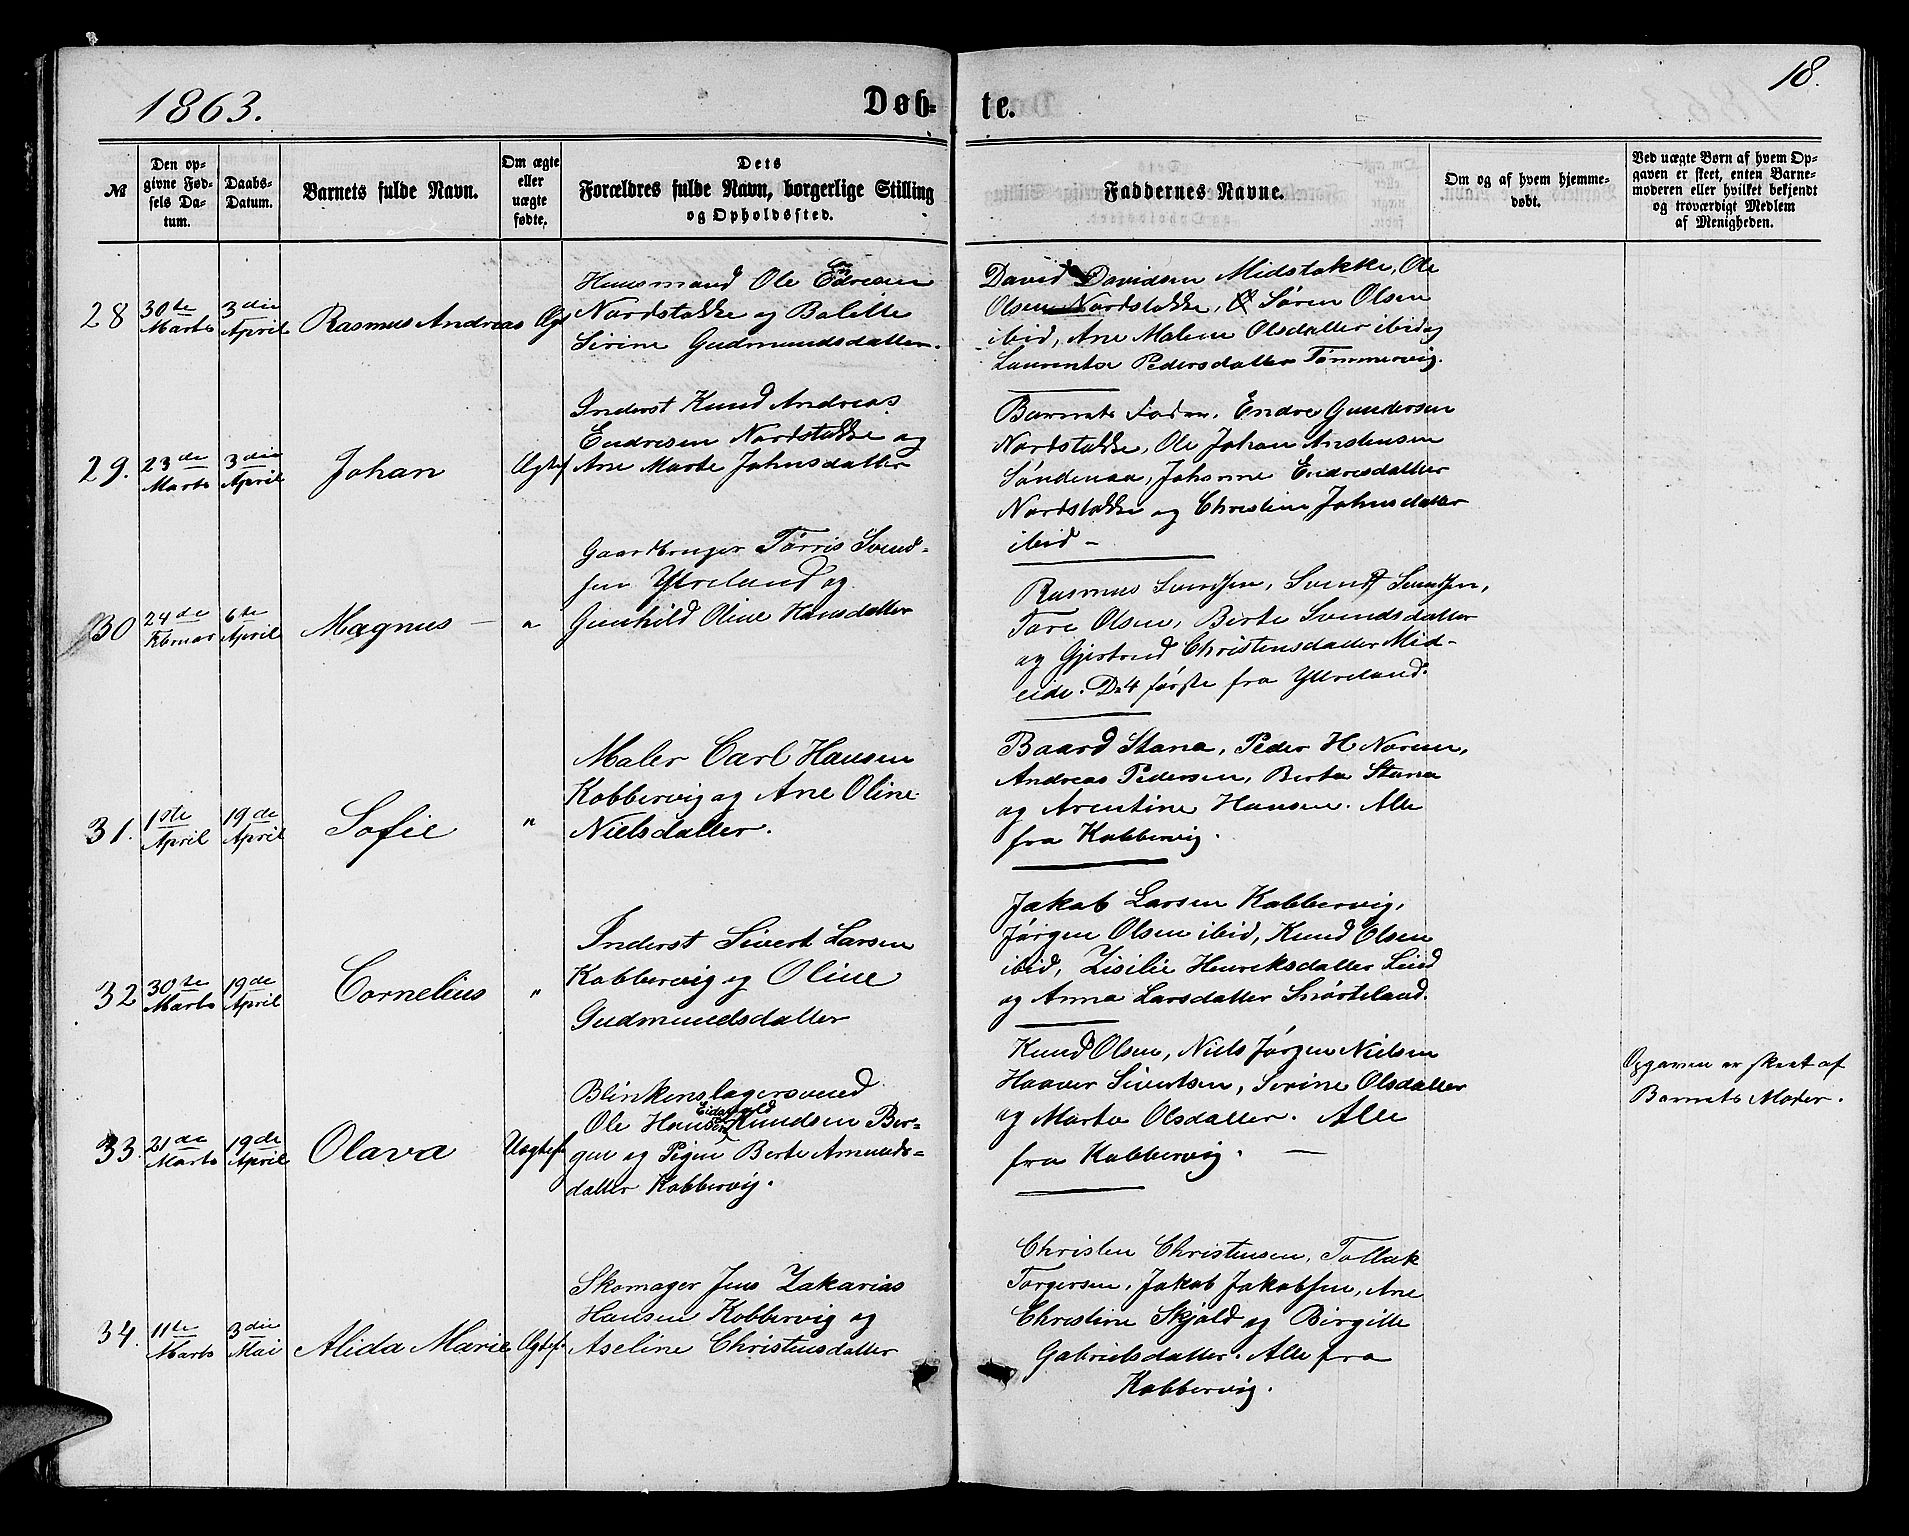 1863.
Døb=
te.
18.
№
Den op=
givne Fød=
sels Da=
tum.
Daabs=
Datum.
Barnets fulde Navn.
Om ægte
eller
uægte
fødte.
Dets
Forældres fulde Navn, borgerlige Stilling
og Opholdssted.
Faddernes Navne.
Om og af hvem hjemme=
døbt.
Ved uægte Børn af hvem Op=
gaven er skeet, enten Barne=
moderen eller hvilket bekjendt
og troværdigt Medlem
af Menigheden.
28
30te
Marts
3die
April
Rasmus Andreas
Huusmand Ole
Nordstokke og Bolette
Serine Gudmundsdatter.
David Davidsen Midstokke, Ole
Olsen Nordstokke, Søren Olsen
ibid, Ane Malene Olsdatter ibid og
Laurentse Pedersdatter Tømmervig.
29.
23de
Marts
3die
April
Johan
Ægtef
Inderst Knud Andreas
Endresen Nordstokke og
Ane Marte Johnsdatter
Barnets Fader, Endre Gundersen
Nordstokke, Ole Johan Anstensen
Søndenaa, Johanne Endresdatter
Nordstokke og Christine Johnsdatter
ibid –
30
24de
Februar
6te
April
Magnus –
"
Gaardbruger Tørris Svend=
sen Ytreland og
Gunhild Oline Hansdatter
Rasmus Svendsen, Svend Svendsen,
Tore Olsen, Berte Svendsdatter
og Gjertrud Christensdatter Mid=
eide. De 4 første fra Ytreland.
31.
1ste
April
19de
April
Sofie
"
Maler Carl Hansen
Kobbervig og Ane Oline
Nielsdatter.
Baard Stana, Peder H Noren,
Andreas Pedersen, Berta Stana
og Arentine Hansen. Alle
fra Kobbervig.
32
30te
Marts
19de
April
Cornelius
"
Inderst Sivert Larsen
Kobbervig og Oline
Gudmundsdatter
Jakob Larsen Kobbervig,
Jørgen Olsen ibid, Knud Olsen
ibid, Zisilie Henriksdatter Lind
og Anna Larsdatter Snørteland.
33.
21de
Marts
19de
April
Olava
Uægtef
Blinkenslagersvend
Ole Hansen Knudsen Ber=
gen og Pigen Berte Amunds=
datter Kobbervig.
Knud Olsen, Niels Jørgen Nielsen
Haaver Sivertsen, Serine Olsdatter
og Marta Olsdatter. Alle
fra Kobbervig. –
Opgaven er skeet af
Barnets Moder.
34.
11te
Marts
3die
Mai
Alida Marie
Ægtef.
Skomager Jens Zakarias
Hansen Kobbervig og
Aseline Christensdatter
Christen Christensen, Tollak
Torgersen, Jakob Jakobsen, Ane
Christine Skjold og Birgitte
Gabrielsdatter. Alle fra
Kobbervig.